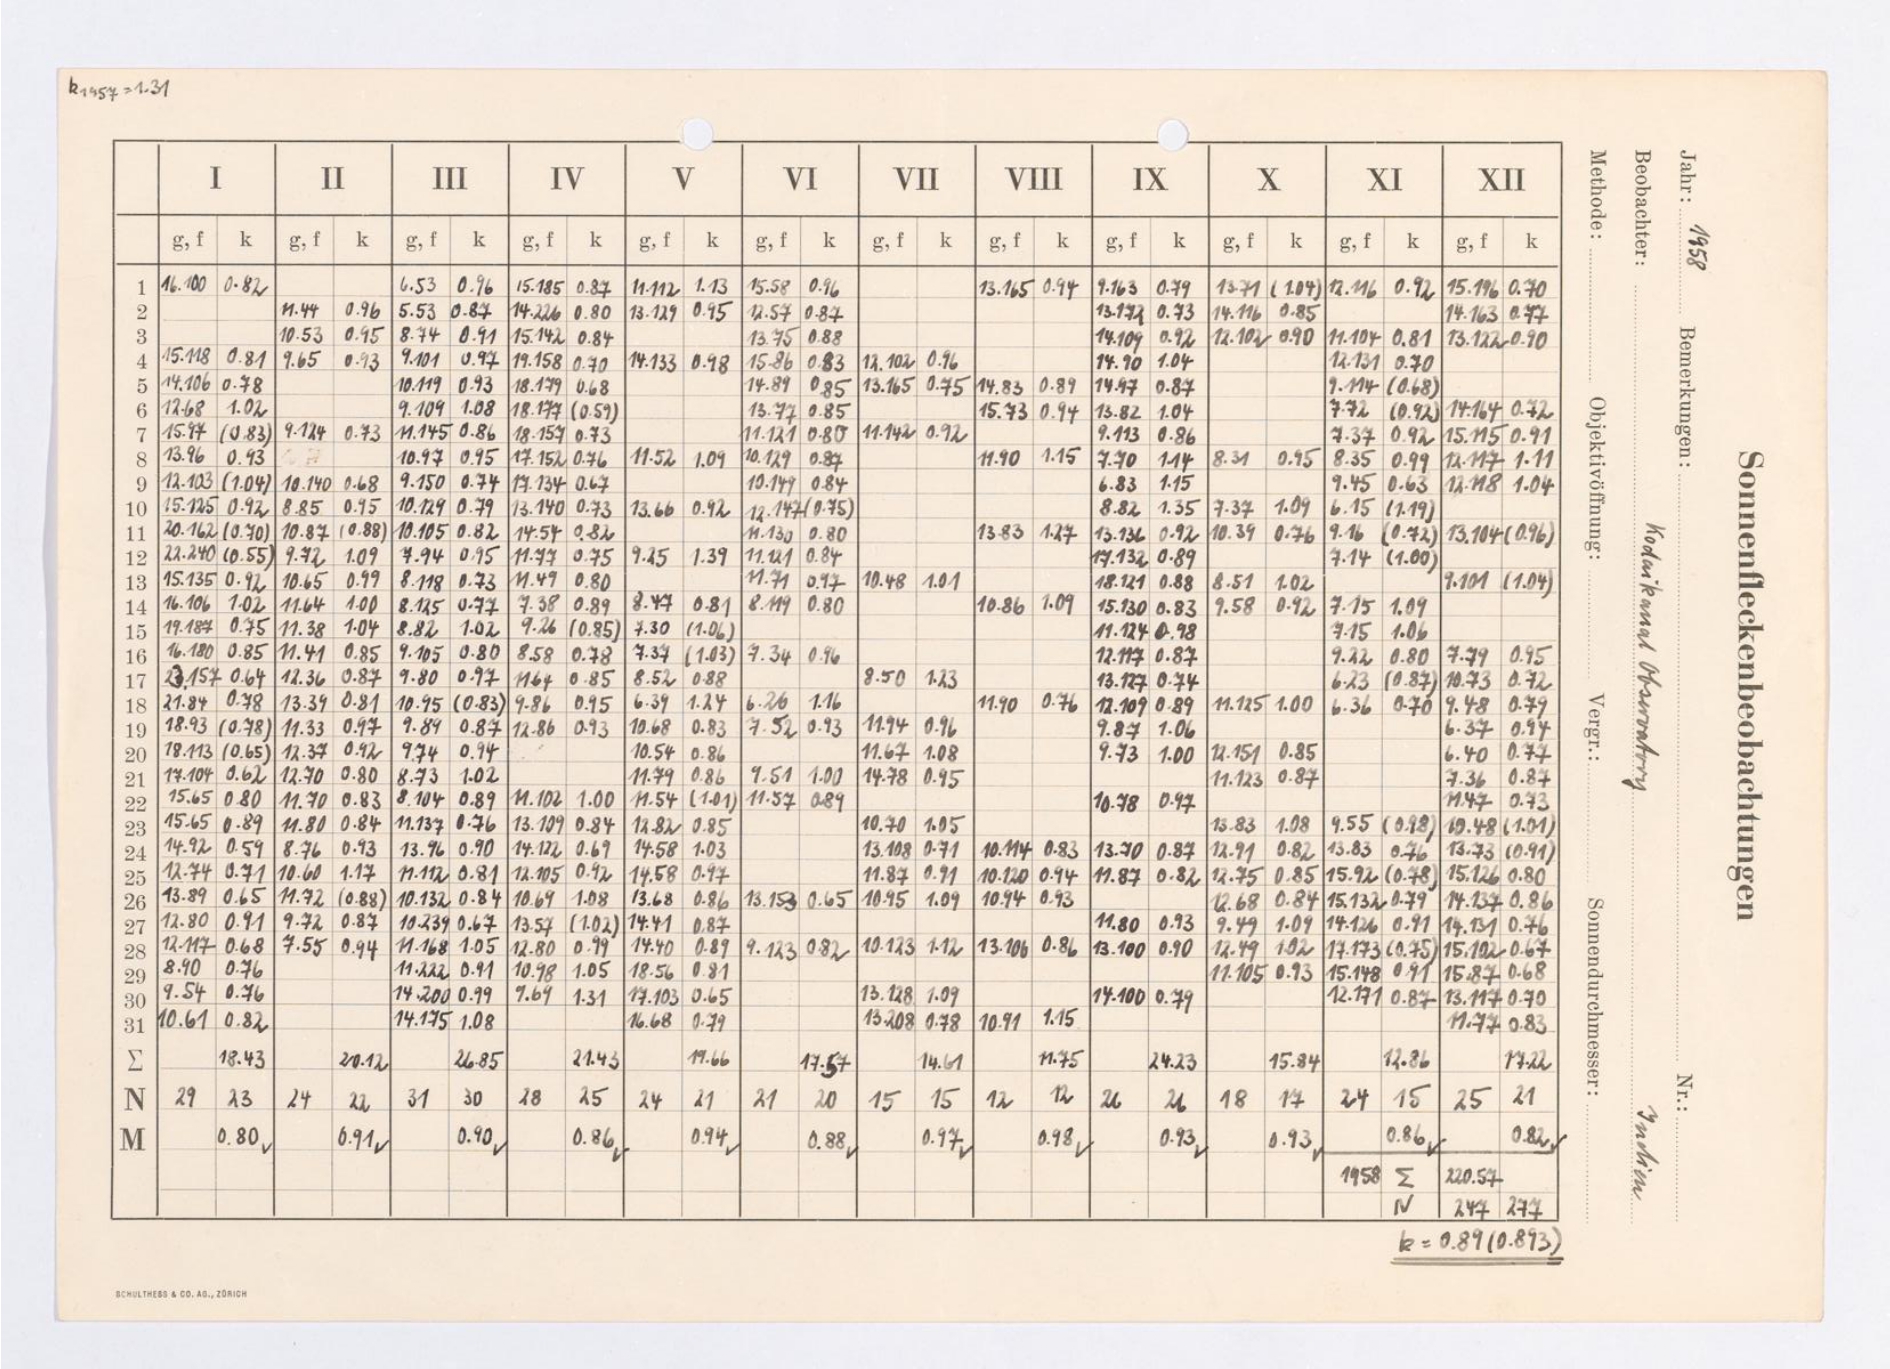 k1957=1.31
I II III IV V VI VII VIII IX X XI XII
g, f k g, f k g, f k g, f k g, f k g, f k g, f k g, f k g, f k g, f k g, f k g, f k
1 16.100 0.82 6.53 0.96 15.185 0.87 11.112 1.13 15.58 0.96 13.165 0.94 9.163 0.79 13.71 (1.04) 12.116 0.92 15.196 0.70
2 11.44 0.96 5.53 0.87 14.226 0.80 13.129 0.95 12.57 0.87 13.172 0.73 14.116 0.85 14.163 0.77
3 10.53 0.95 8.74 0.91 15.142 0.84 13.75 0.88 14.109 0.92 12.102 0.90 11.104 0.81 13.122 0.90
4 15.118 0.81 9.65 0.93 9.101 0.97 19.158 0.70 14.133 0.98 15.86 0.83 12.102 0.96 14.90 1.04 12.131 0.70
5 14.106 0.78 10.119 0.93 18.179 0.68 14.89 0.85 13.165 0.75 14.83 0.89 14.97 0.87 9.114 (0.68)
6 12.68 1.02 9.109 1.08 18.177 (0.59) 13.77 0.85 15.73 0.94 13.82 1.04 7.72 (0.92) 14.164 0.72
7 15.97 (0.83) 9.124 0.73 11.145 0.86 18.157 0.73 11.121 0.80 11.142 0.92 9.113 0.86 7.37 0.92 15.115 0.91
8 13.96 0.93 10.97 0.95 17.152 0.76 11.52 1.09 10.129 0.87 11.90 1.15 7.70 1.14 8.31 0.95 8.35 0.99 12.117 1.11
9 12.103 (1.04) 10.140 0.68 9.150 0.74 17.134 0.67 10.149 0.84 6.83 1.15 9.45 0.63 12.118 1.04
10 15.125 0.92 8.85 0.95 10.129 0.79 13.140 0.73 13.66 0.92 12.147 (0.75) 8.82 1.35 7.37 1.09 6.15 (1.19)
11 20.162 (0.70) 10.87 (0.88) 10.105 0.82 14.54 0.82 11.130 0.80 13.83 1.27 13.136 0.92 10.39 0.76 9.16 (0.72) 13.104 (0.96)
12 22.240 (0.55) 9.72 1.09 7.94 0.95 11.77 0.75 9.25 1.39 11.121 0.84 17.132 0.89 7.14 (1.00)
13 15.135 0.92 10.65 0.99 8.118 0.73 11.49 0.80 11.71 0.97 10.48 1.01 18.121 0.88 8.51 1.02 9.101 (1.04)
14 16.106 1.02 11.64 1.00 8.125 0.77 7.38 0.89 8.47 0.81 8.119 0.80 10.86 1.09 15.130 0.83 9.58 0.92 7.15 1.09
15 19.187 0.75 11.38 1.04 8.82 1.02 9.26 (0.85) 7.30 (1.06) 11.124 0.98 7.15 1.06
16 16.180 0.85 11.41 0.85 9.105 0.80 8.58 0.78 7.37 (1.03) 7.34 0.96 12.117 0.87 9.22 0.80 7.79 0.95
17 23.157 0.64 12.36 0.87 9.80 0.97 11.64 0.85 8.52 0.88 8.50 1.23 13.127 0.74 6.23 (0.87) 10.73 0.72
18 21.84 0.78 13.39 0.81 10.95 (0.83) 9.86 0.95 6.39 1.24 6.26 1.16 11.90 0.76 12.109 0.89 11.125 1.00 6.36 0.70 9.48 0.79
19 18.93 (0.78) 11.33 0.97 9.89 0.87 12.86 0.93 10.68 0.83 7.52 0.93 11.94 0.96 9.87 1.06 6.37 0.94
20 18.113 (0.65) 12.37 0.92 9.74 0.94 10.54 0.86 11.67 1.08 9.73 1.00 12.151 0.85 6.40 0.77
21 17.104 0.62 12.70 0.80 8.73 1.02 11.79 0.86 9.51 1.00 14.78 0.95 11.123 0.87 7.36 0.87
22 15.65 0.80 11.70 0.83 8.104 0.89 11.102 1.00 11.54 (1.01) 11.57 0.89 10.78 0.97 11.47 0.73
23 15.65 0.89 11.80 0.84 11.137 0.76 13.109 0.84 12.82 0.85 10.70 1.05 13.83 1.08 9.55 (0.98) 10.48 (1.01)
24 14.92 0.59 8.76 0.93 13.96 0.90 14.122 0.69 14.58 1.03 13.108 0.71 10.114 0.83 13.70 0.87 12.91 0.82 13.83 0.76 13.73 (0.91)
25 12.74 0.71 10.60 1.17 11.112 0.81 12.105 0.92 14.58 0.97 11.87 0.91 10.120 0.94 11.87 0.82 12.75 0.85 15.92 (0.78) 15.126 0.80
26 13.89 0.65 11.72 (0.88) 10.132 0.84 10.69 1.08 13.68 0.86 13.153 0.65 10.95 1.09 10.94 0.93 12.68 0.84 15.132 0.79 14.137 0.86
27 12.80 0.91 9.72 0.87 10.239 0.67 13.57 (1.02) 14.41 0.87 11.80 0.93 9.49 1.09 14.126 0.91 14.131 0.76
28 12.117 0.68 7.55 0.94 11.168 1.05 12.80 0.99 14.40 0.89 9.123 0.82 10.123 1.12 13.106 0.86 13.100 0.90 12.49 1.02 17.173 (0.75) 15.102 0.67
29 8.90 0.76 11.222 0.91 10.98 1.05 18.56 0.81 11.105 0.93 15.148 0.91 15.87 0.68
30 9.54 0.76 14.200 0.99 9.69 1.31 17.103 0.65 13.128 1.09 14.100 0.79 12.171 0.87 13.117 0.70
31 10.61 0.82 14.175 1.08 16.68 0.79 13.208 0.78 10.91 1.15 11.77 0.83
Σ 18.43 20.12 26.85 21.43 19.66 17.57 14.61 11.75 24.23 15.84 12.86 17.22
N 29 23 24 22 31 30 28 25 24 21 21 20 15 15 12 12 26 26 18 17 24 15 25 21
M 0.80 0.91 0.90 0.86 0.94 0.88 0.97 0.98 0.93 0.93 0.86 0.82
1958 Σ 220.57
N 247 277
k = 0.89 (0.893)
SCHULTHESS & CO. AG., ZÜRICH
Sonnenfleckenbeobachtungen
Jahr: 1958 Bemerkungen: Nr.:
Beobachter: Kodaikanal Observatory Indien
Methode: Objektivöffnung: Vergr.: Sonnendurchmesser: